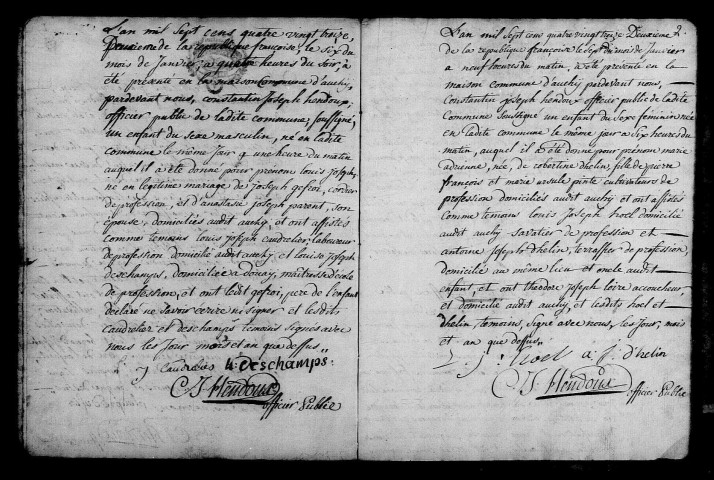 L'an mil sept cens quatre vingt treize,
premiere de la republique françoise, le six du
mois de Janvier, a quatre heures du soir, à
été presenté en la maison Commune d'auchy,
pardevant nous, constantin Joseph hendoux,
officier public de ladite commune, soussigné,
un enfant du sexe masculin, né en ladite
commune le même Jour q une heure du matin
auquel il a été donné pour prenom louis Joseph,
né en legitime mariage de Joseph gefroi, cordier
de profession, et d'anastasie Joseph parent, son
épouse, domiciliés audit auchy, et ont assistés
comme temoins louis Joseph caudrelier, laboureur
de profession domicilié audit auchy et louise Joseph
deschamps, domiciliée a douay, maitresse d'ecole
de profession, et ont ledit gefroi, pere de l'enfant
declaré ne savoir ecrire ni signer et lesdits
caudrelier et deschamps temoins signés avec
nous les Jour mois et an que dessus,,
j caudrelier deschamps
C J Hendoux
officier Public
2.
L'an mil sept cens quatre vingt treize Deuxieme
de la republique françoise le sept du mois de Janvier
a neuf heures du matin, a été presenté en la
maison commune d'auchy pardevant nous,
Constantin joseph hendoux officier public de ladite
Commune Soussigné un enfant du sexe feminin née
en ladite commune le même jour a six heures du
matin, auquel il a été donné pour prénom marie
adrienne, née, de robertine dhelin, fille de pierre
françois et marie ursule pinte cultivateurs de
profession domiciliés audit auchy et ont assistés
comme temoins louis Joseph hoel domicilié
audit auchy savatier de profession et
antoine Joseph Dhelin, terrassier de profession,
domicilié au même lieu et oncle audit
enfant, et ont theodore Joseph loire accoucheur,
et domicilié audit auchy, et lesdits hoel et
dhelin temoins, signé avec nous, les Jour, mois
et an que dessus,,
L. J. hoel a. J. d'helin
C J Hendoux
officier Public